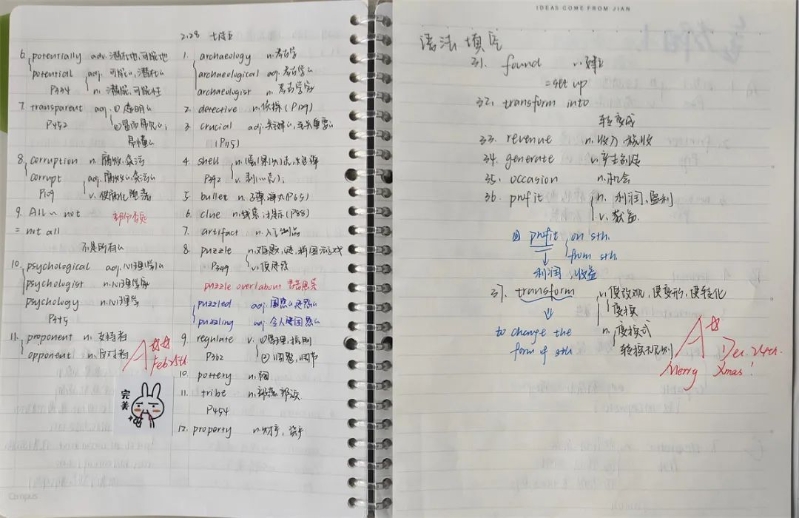 2.28
6. potentially adv. 潜在地,可能地
potential adj. 可能的,潜在的
P434 n. 潜能,可能性
7. transparent adj. ①透明的
P452
易懂的
8. corruption n. 腐败,贪污
corrupt adj. 腐败的,贪污的
P119 v. 使腐化,堕落
9. All is not 部分否定
= not all
不是所有的
10. psychological adj. 心理学的
psychologist n. 心理学家
psychology n. 心理学
P445
11. proponent n. 支持者
opponent n. 反对者
A
Feb 28th
完美
1. archaeology n. 考古学
archaeological adj. 考古学的
archaeologist n. 考古学家
2. detective n. 侦探 (P129)
3. crucial adj. 关键的,至关重要的
(P115)
4. shell n.
P392 v.
5. bullet n. 子弹 (P65)
6. clue n. 线索 (P88)
7. artifact n. 人工制品
8. puzzle n. 难题,谜,拼图游戏
P309 v. 使困惑
puzzle over/about
puzzled adj. 困惑的
puzzling adj. 令人困惑的
9. regulate v. ①管理,控制
P362 ②调整,调节
10. pottery n.
11. tribe n. 部落,部族
P454
12. property n. 财产,
Campus
IDEAS COME FROM JIAN
语法填空
31. found v. 建立
= set up
32. transform into
转变成
33. revenue n. 收入,税收
34. generate v. 产生,创造
35. occasion n. 机会
36. profit n. 利润,盈利
v. 获益
profit on sth.
from sth.
利润,收益
37. transform v. 使改观,使变形,使转化
to change the
form of sth n.
A
Dec. 25th.
Merry Xmas!